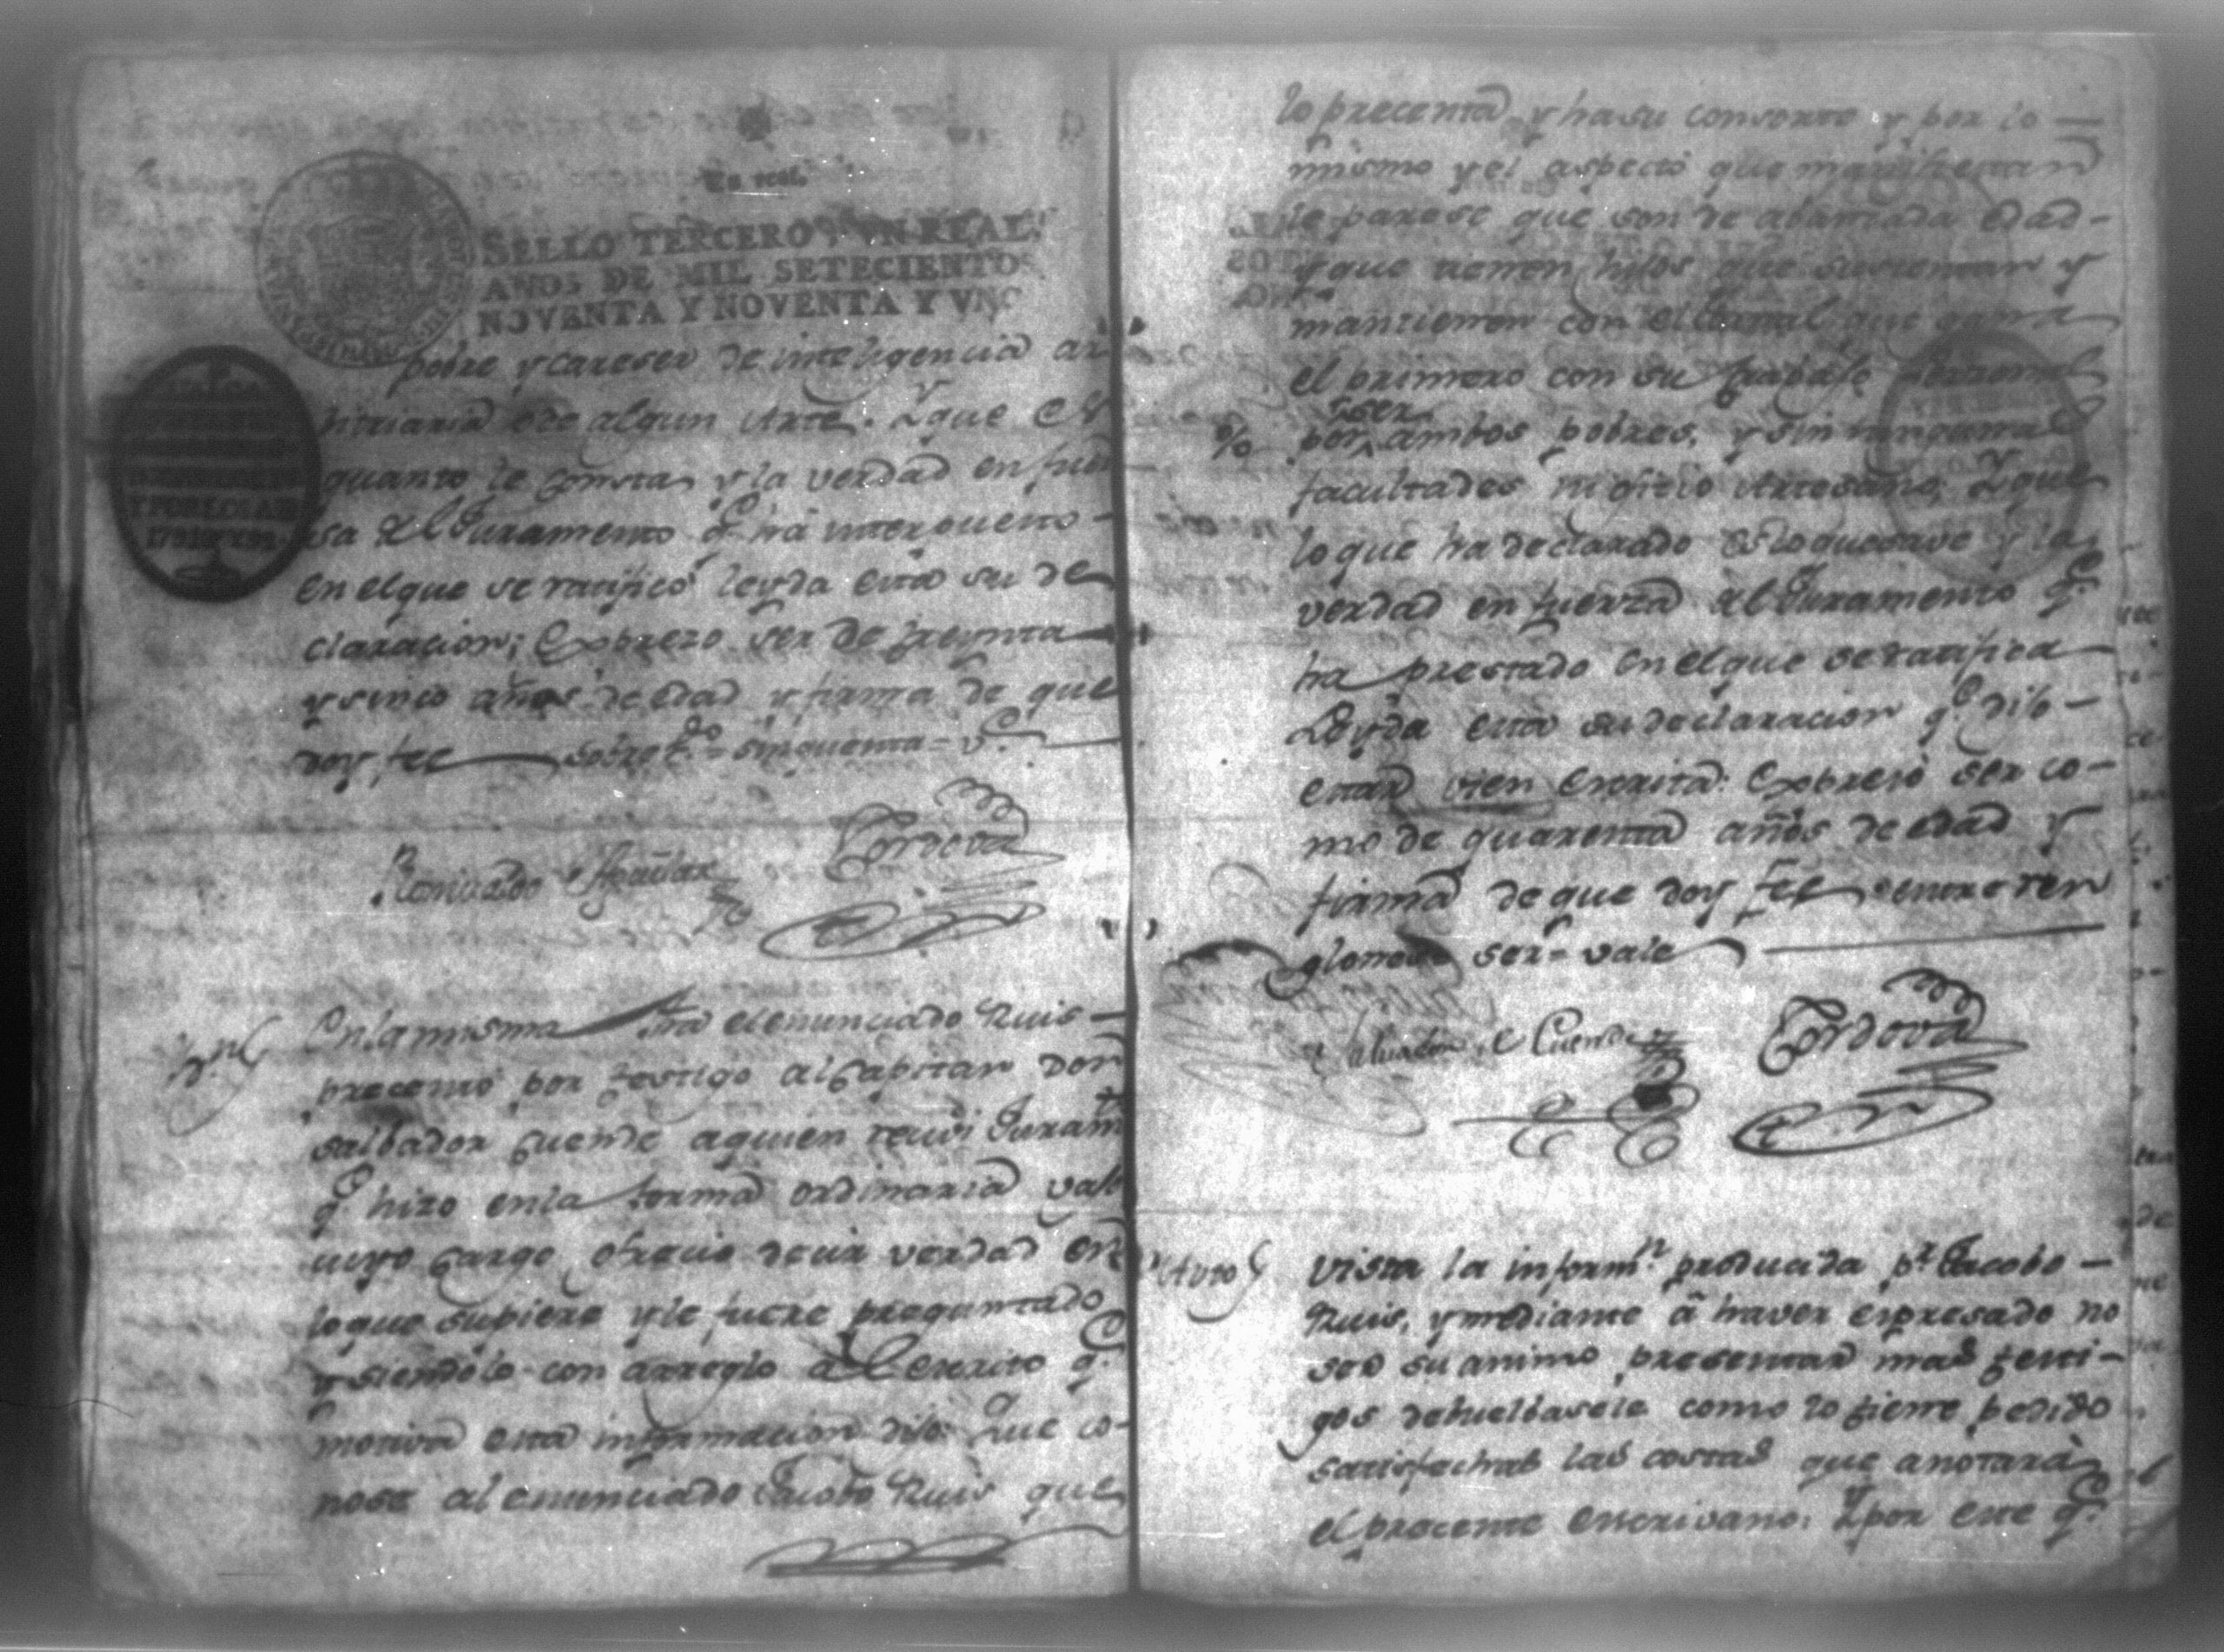 Un real.
SELLO TERCERO, VN REAL,
AÑOS DE MIL SETECIENTOS
NOVENTA Y NOVENTA Y VNO
pobre y careser de inteligencia ar
bitriaria de algun Arte. Y que es
quanto le consta y la verdad en fuer
sa del Juramento q.e há interpuesto
en el que se ratificó leyda esta su de
claracion; Exprezo ser de treynta
y sinco años de edad y firma de que
doy fee sobre r.do = sinquenta = v.e
Romualdo Aguilar
Cordova
En la misma hra el enunciado Ruis
precentó por testigo al Capitan Don
Salbador Cuende a quien recivi Juram.to
q.e hizo en la forma ordinaria vajo
cuyo cargo ofrecio decir verdad en
lo que supiere y le fuere preguntado
y siendolo con arreglo al escrito q.e
motiva esta informacion dijo: Que co-
nose al enunciado Jacobo Ruis que
lo precenta y ha su consorte y por lo
mismo y el aspecto que manifiestan
le parese que son de abansada edad
y que tienen hijos que sustentan y
mantienen con el Jornal que gana
el primero con su trabajo Personal
ser
por ambos pobres, y sin ningunas
facultades ni oficio Artesano; Y que
lo que ha declarado es lo que save y la
verdad en fuerza del Juramento q.e
ha prestado en el que se ratifica
Leyda esta su declaracion q.e dijo
estar vien escrita: Expresó ser co-
mo de quarenta años de edad y
firma de que doy fee entre ren
glones ser = vale
Salvador de Cuende
Cordova
Auto
Vista la inform.n producida p.r Jacobo
Ruis, y mediante á haver expresado no
ser su animo presentar mas testi-
gos debuelbasele como lo tiene pedido
satisfechas las costas que anotará
el precente escrivano. Y por este q.e